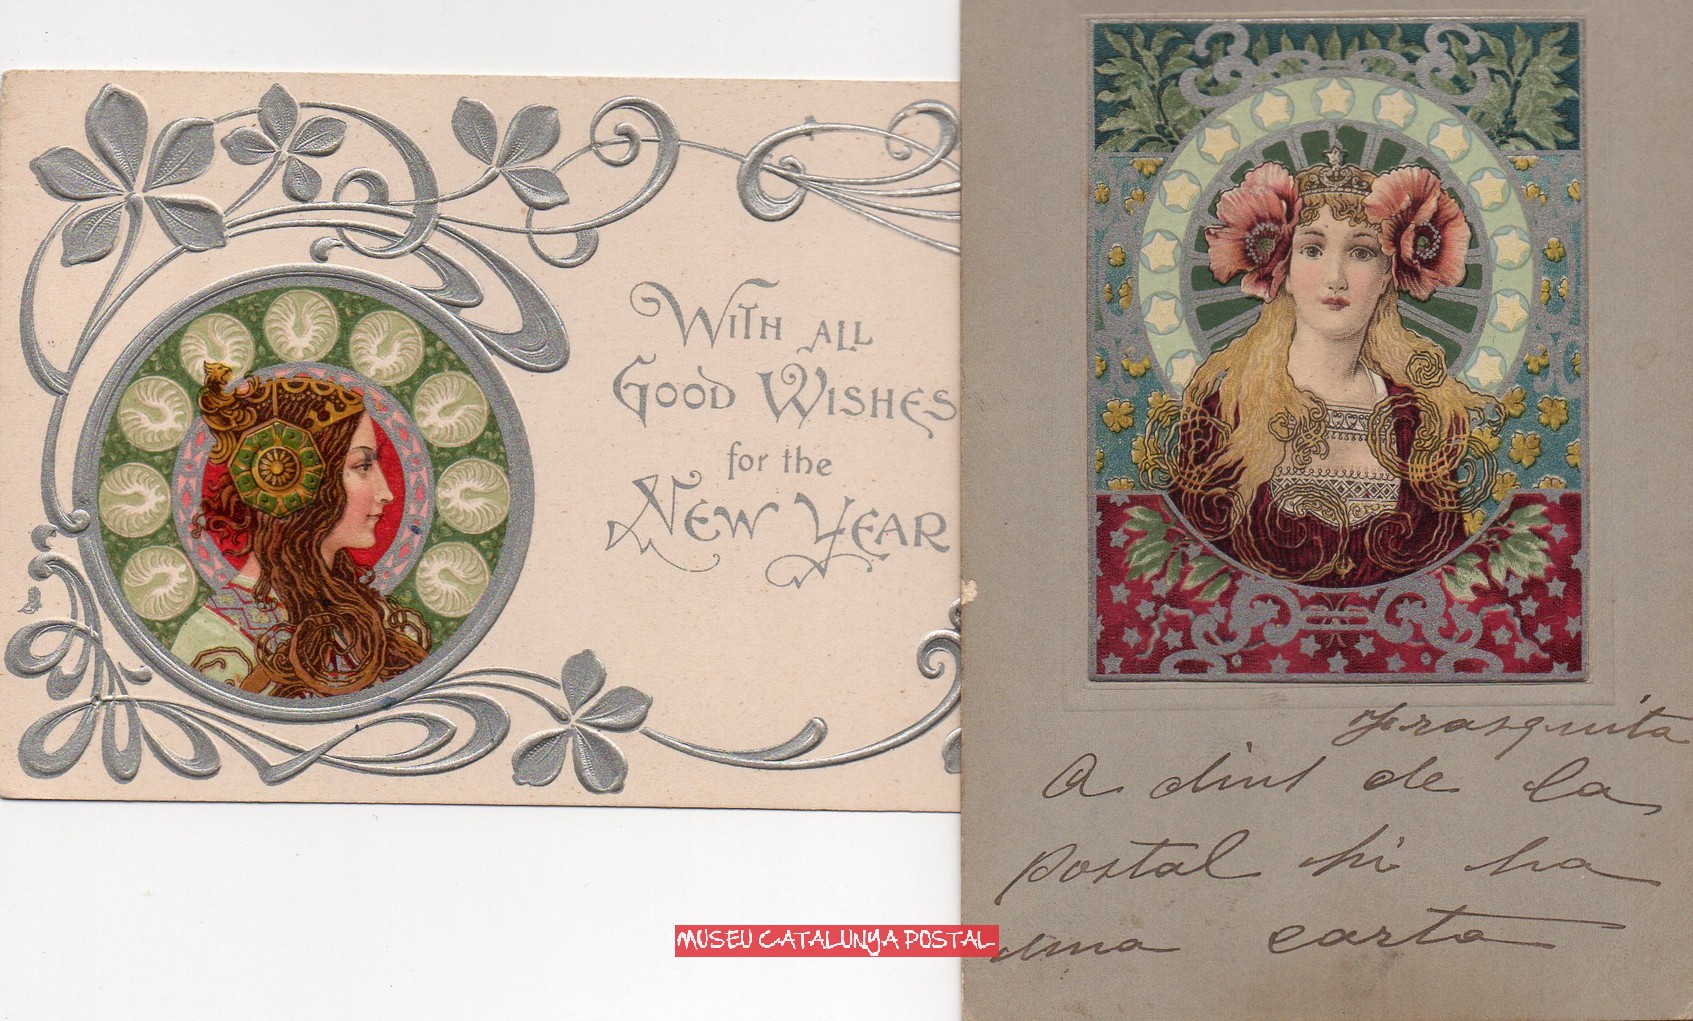 WITH ALL
GOOD WISHES
for the
NEW YEAR
Frasquita
A dins de la
postal hi ha
una carta
MUSEU CATALUNYA POSTAL